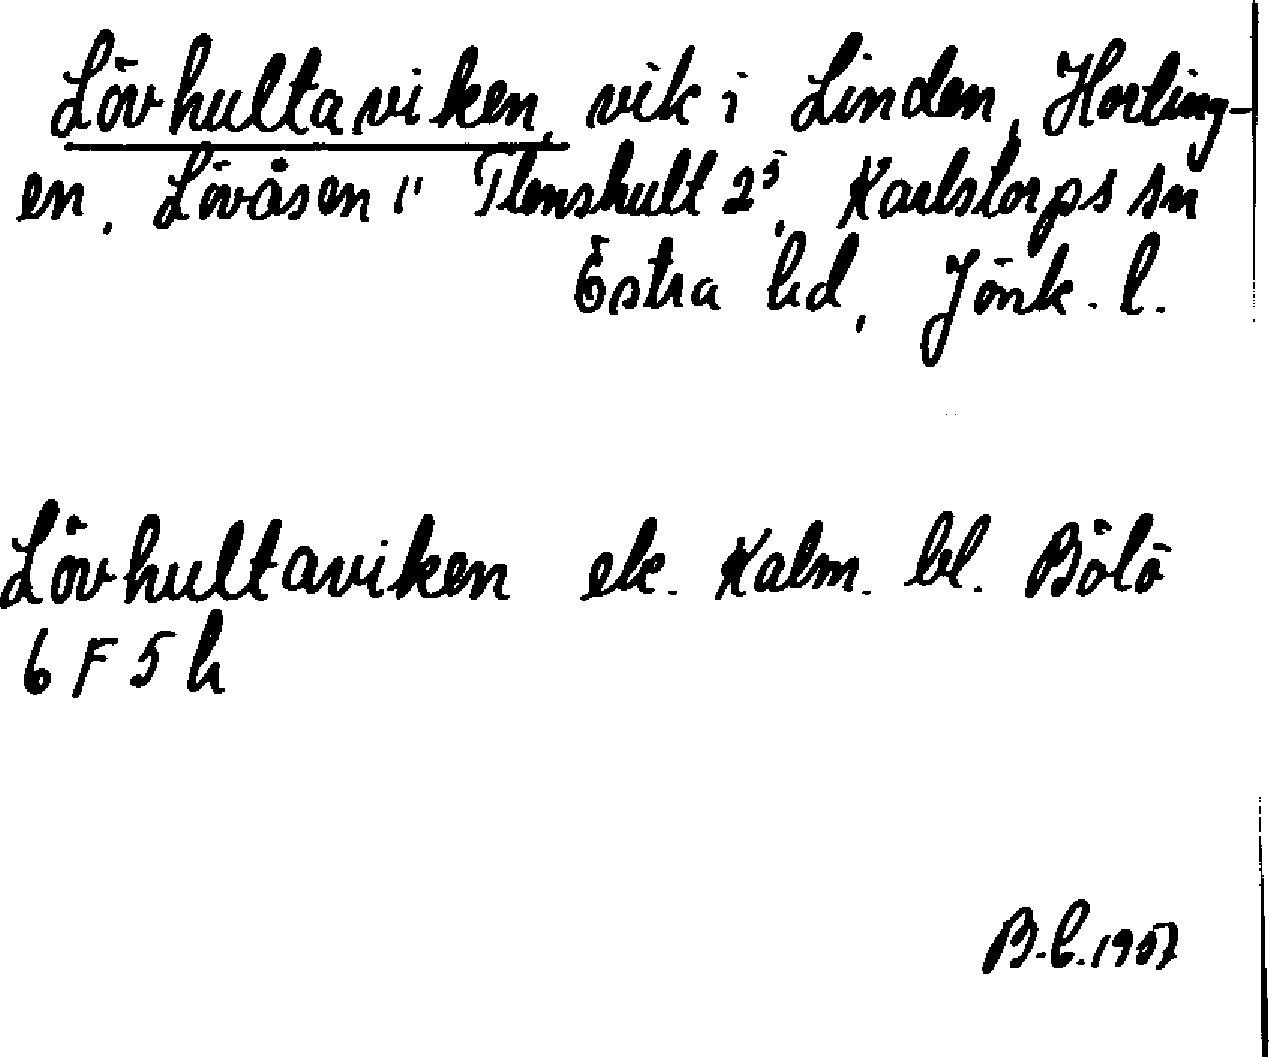 Lövhultaviken, vik i Linden, Horling-
en, Lövåsen 1¹ Flenshult 2³, Karlstorps sn
Östra hd, Jönk. l.
Lövhultaviken ek. Kalm. bl. Bölö
6 F 5 h
B.E. 1957